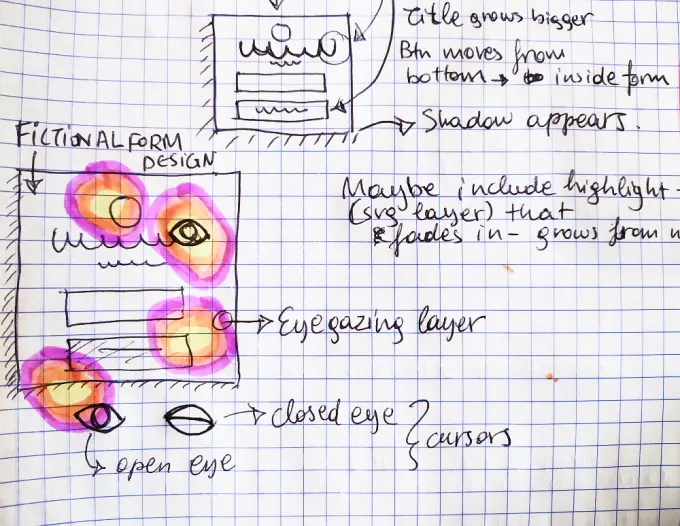 Title grows bigger
Btn moves from
bottom → inside form
Shadow appears.
FICTIONAL FORM
DESIGN
Maybe include highlight -
(svg layer) that
fades in - grows from
Eye gazing layer
closed eye
cursors
open eye